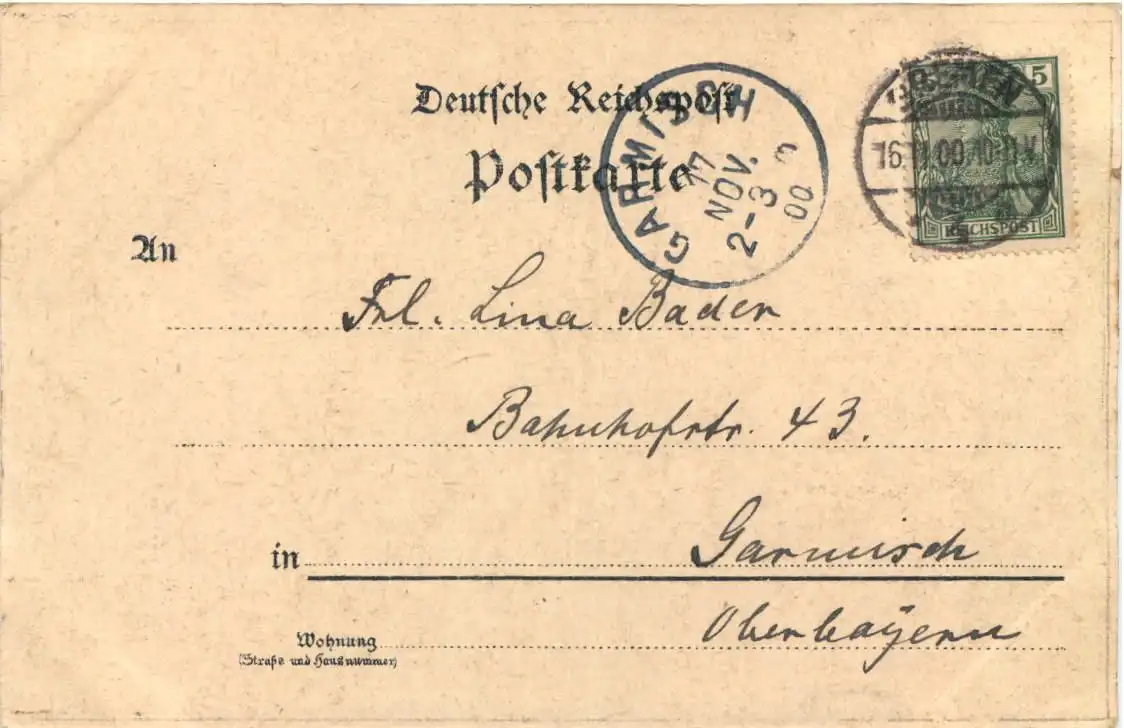 Deutsche Reichspost
Postkarte
GARMISCH
17
NOV.
2-3
00
BREMEN
16.11.00.10-11V.
5
REICHSPOST
An
Frl. Lina Bader
Bahnhofstr. 43.
in
Garmisch
Oberbayern
Wohnung
(Straße und Hausnummer)